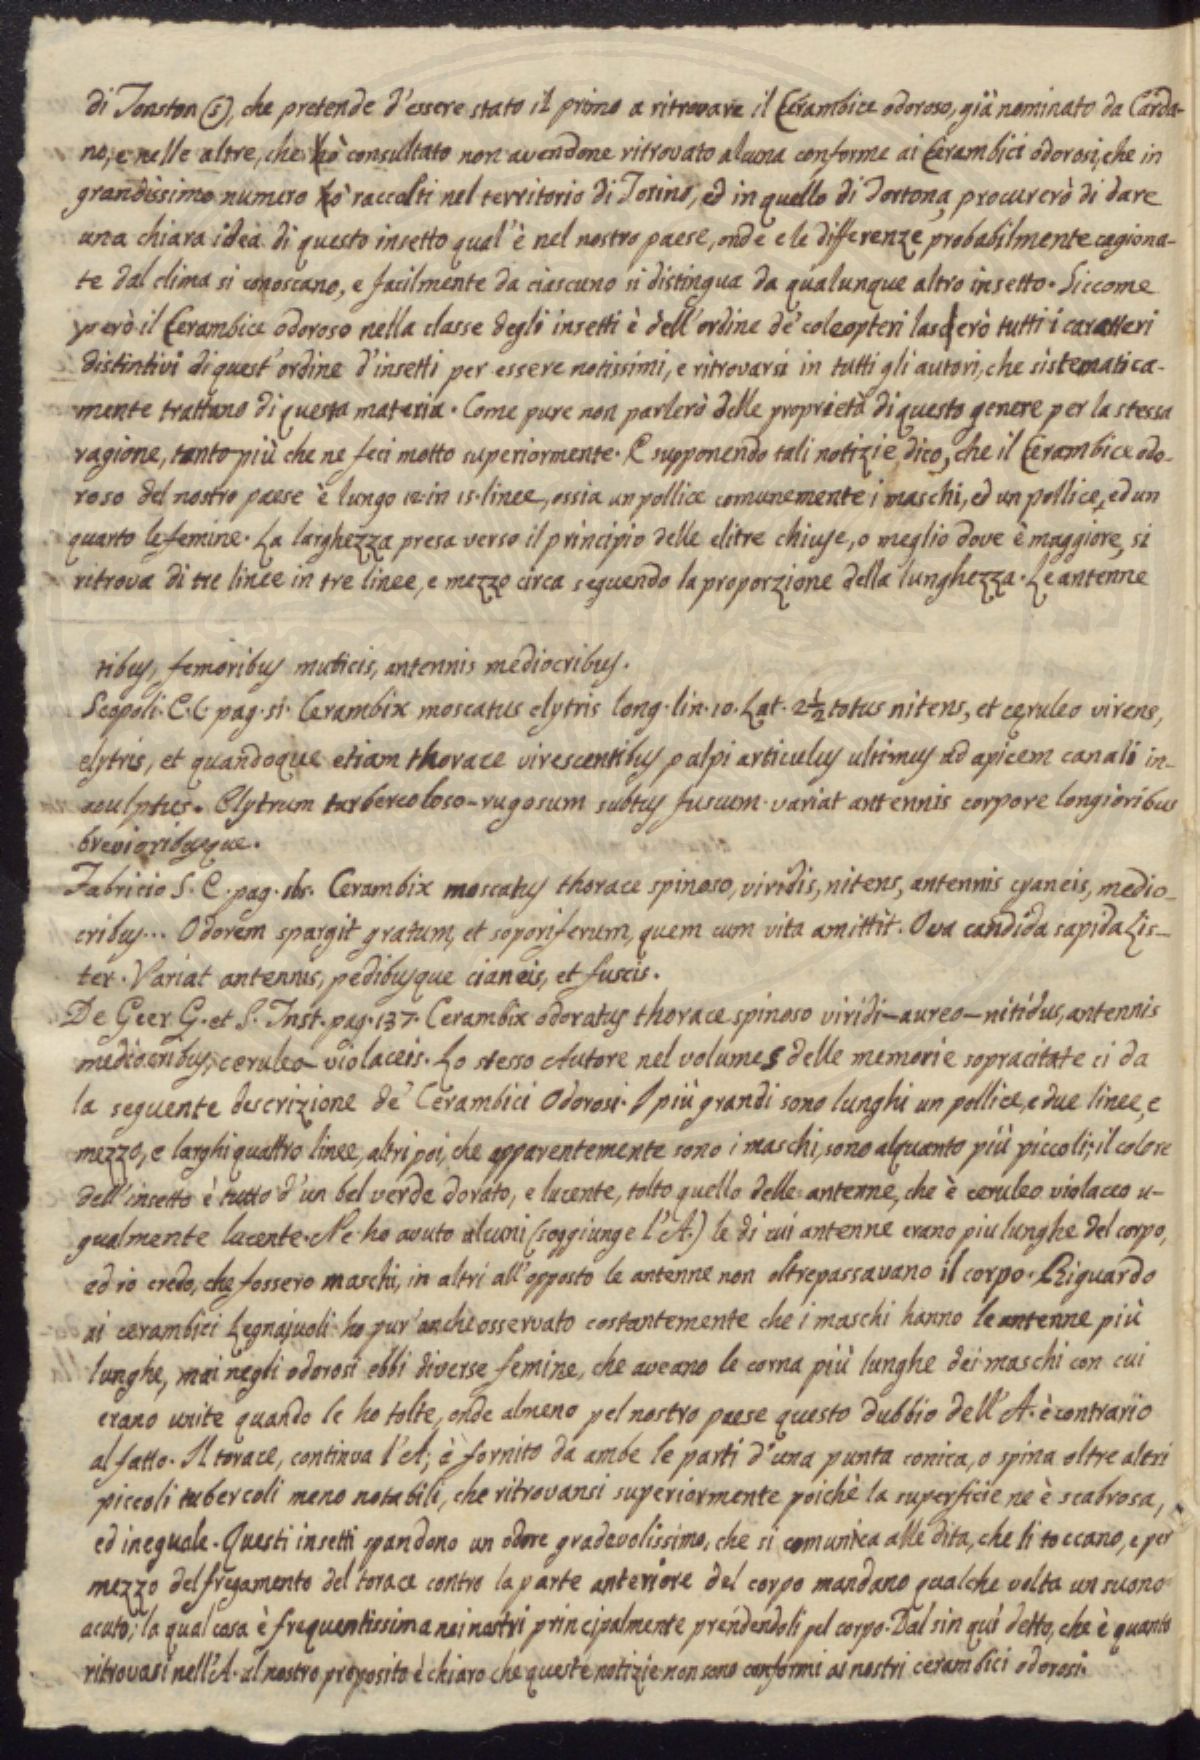 di Jonston (s), che pretende d'essere stato il primo a ritrovare il Cerambice odoroso, già nominato da Carda-
no, e nelle altre, che hò consultato non avendone ritrovato alcuna conforme ai Cerambici odorosi, che in
grandissimo numero hò raccolti nel territorio di Torino, ed in quello di Tortona, procurerò di dare
una chiara idea di questo insetto qual'è nel nostro paese, onde e le differenze probabilmente cagiona-
te dal clima si conoscano, e facilmente da ciascuno si distingua da qualunque altro insetto. Siccome
però il Cerambice odoroso nella classe degli insetti è dell'ordine de' coleopteri lascierò tutti i caratteri
distintivi di quest'ordine d'insetti per essere notissimi, e ritrovarsi in tutti gli autori, che sistematica-
mente trattano di questa materia. Come pure non parlerò delle proprietà di questo genere per la stessa
ragione, tanto più che ne feci motto superiormente. E supponendo tali notizie dico, che il Cerambice odo-
roso del nostro paese è lungo 12 in 15 linee, ossia un pollice comunemente i maschi, ed un pollice, ed un
quarto le femine. La larghezza presa verso il principio delle elitre chiuse, o meglio dove è maggiore, si
ritrova di tre linee in tre linee, e mezzo circa seguendo la proporzione della lunghezza. Le antenne
tibus, femoribus muticis, antennis mediocribus.
Scopoli. E. C. pag. 51. Cerambix moscatus elytris long. lin. 10. Lat. 2½ totus nitens, et cęruleo virens,
elytris, et quandoque etiam thorace virescentibus palpi articulus ultimus ad apicem canali in-
sculptus. Elytrum tuberculoso-rugosum subtus fuscum. variat antennis corpore longioribus
brevioribusque.
Fabricio S. E. pag. 165. Cerambix moscatus thorace spinoso, viridis, nitens, antennis cyaneis, medio-
cribus... Odorem spargit gratum, et soporiferum, quem cum vita amittit. Ova candida sapida Lis-
ter. Variat antennis, pedibusque cianeis, et fuscis.
De Geer G. et S. Inst. pag. 137. Cerambix odoratus thorace spinoso viridi-aureo-nitidus, antennis
mediocribus, ceruleo-violaceis. Lo stesso Autore nel volume 5 delle memorie sopracitate ci da
la seguente descrizione de' Cerambici Odorosi. I più grandi sono lunghi un pollice, e due linee, e
mezzo, e larghi quattro linee, altri poi, che apparentemente sono i maschi, sono alquanto più piccoli; il colore
dell'insetto è tutto d'un bel verde dorato, e lucente, tolto quello delle antenne, che è ceruleo violaceo u-
gualmente lucente. Ne ho avuto alcuni (soggiunge l'A.) le di cui antenne erano piu lunghe del corpo,
ed io credo, che fossero maschi, in altri all'opposto le antenne non oltrepassavano il corpo. Riguardo
ai cerambici Legnajuoli ho pur'anche osservato costantemente che i maschi hanno le antenne più
lunghe, mai negli odorosi ebbi diverse femine, che aveano le corna più lunghe dei maschi con cui
erano unite quando le ho tolte, onde almeno pel nostro paese questo dubbio dell'A. è contrario
al fatto. Il torace, continua l'A; è fornito da ambe le parti d'una punta conica, o spina oltre altri
piccoli tubercoli meno notabili, che ritrovansi superiormente poichè la superficie ne è scabrosa,
ed ineguale. Questi insetti spandono un odore gradevolissimo, che si comunica alle dita, che li toccano, e per
mezzo del fregamento del torace contro la parte anteriore del corpo mandano qualche volta un suono
acuto; la qual cosa è frequentissima nei nostri principalmente prendendoli pel corpo. Dal sin quì detto, che è quanto
ritrovasi nell'A. al nostro proposito è chiaro che queste notizie non sono conformi ai nostri cerambici odorosi.